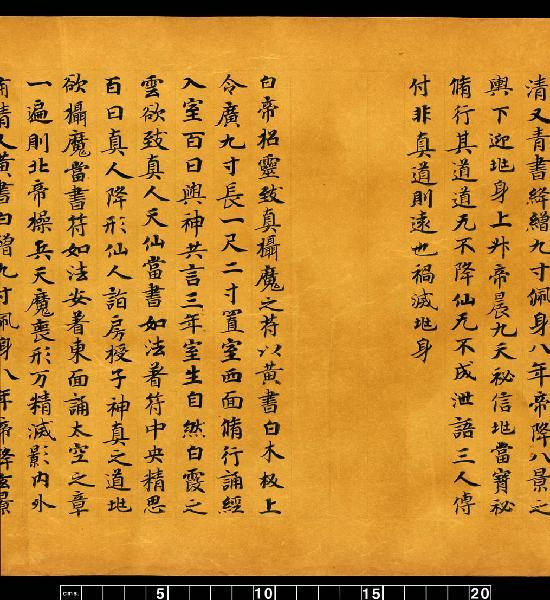 清又青書絳繒九寸佩身八年帝降八景之
輿下迎玼身上升帝晨九天祕信玼當寶祕
脩行其道道无不降仙无不成泄語三人傳
付非真道則遠也禍滅玼身
白帝招靈致真攝魔之符以黃書白木板上
令廣九寸長一尺二寸置室西面脩行誦經
入室百日與神共言三年室生自然白霞之
雲欲致真人天仙當書如法著符中央精思
百日真人降形仙人詣房授子神真之道玼
欲攝魔當書符如法安著東面誦太空之章
一遍則北帝操兵天魔喪形万精滅影內外
清又黃書白繒九寸佩身八年帝降玄景